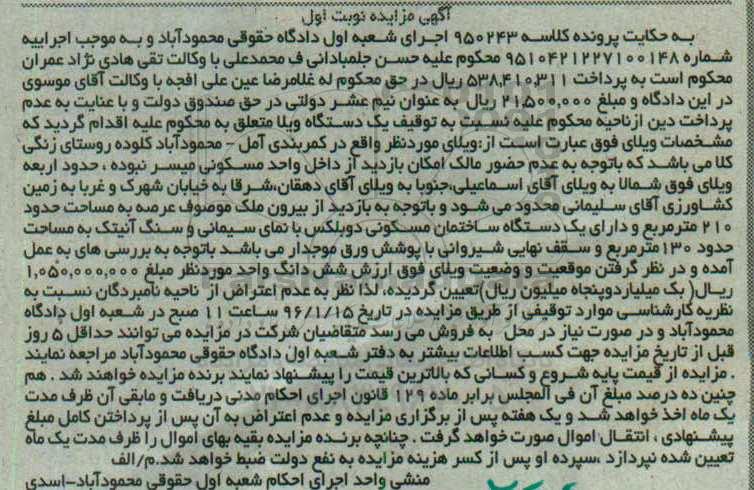 آگهی مزایده نوبت اول
به حکایت پرونده کلاسه ۹۵۰۲۴۳ اجرای شعبه اول دادگاه حقوقی محمودآباد و به موجب اجراییه
شماره ۹۵۱۰۴۲۱۲۲۷۱۰۰۱۴۸ محکوم علیه حسن جلمبادانی ف محمدعلی با وکالت تقی هادی نژاد عمران
محکوم است به پرداخت ۵۳۸,۴۱۰,۳۱۱ ریال در حق محکوم له غلامرضا عین علی افجه با وکالت آقای موسوی
در این دادگاه و مبلغ ۲۱,۵۰۰,۰۰۰ ریال به عنوان نیم عشر دولتی در حق صندوق دولت و با عنایت به عدم
پرداخت دین ازناحیه محکوم علیه نسبت به توقیف یک دستگاه ویلا متعلق به محکوم علیه اقدام گردید که
مشخصات ویلای فوق عبارت است از :ویلای موردنظر واقع در کمربندی آمل - محمودآباد کلوده روستای زنگی
کلا می باشد که باتوجه به عدم حضور مالک امکان بازدید از داخل واحد مسکونی میسر نبوده ، حدود اربعه
ویلای فوق شمالا به ویلای آقای اسماعیلی،جنوبا به ویلای آقای دهقان،شرقا به خیابان شهرک و غربا به زمین
کشاورزی آقای سلیمانی محدود می شود و باتوجه به بازدید از بیرون ملک موصوف عرصه به مساحت حدود
۲۱۰ مترمربع و دارای یک دستگاه ساختمان مسکونی دوبلکس با نمای سیمانی و سنگ آنتیک به مساحت
حدود ۱۳۰مترمربع و سقف نهایی شیروانی با پوشش ورق موجدار می باشد باتوجه به بررسی های به عمل
آمده و در نظر گرفتن موقعیت و وضعیت ویلای فوق ارزش شش دانگ واحد موردنظر مبلغ ۱,۰۵۰,۰۰۰,۰۰۰
ریال( یک میلیاردوپنجاه میلیون ریال)تعیین گردیده، لذا نظر به عدم اعتراض از ناحیه نامبردگان نسبت به
نظریه کارشناسی موارد توقیفی از طریق مزایده در تاریخ ۹۶/۱/۱۵ ساعت ۱۱ صبح در شعبه اول دادگاه
محمودآباد و در صورت نیاز در محل به فروش می رسد متقاضیان شرکت در مزایده می توانند حداقل ۵ روز
قبل از تاریخ مزایده جهت کسب اطلاعات بیشتر به دفتر شعبه اول دادگاه حقوقی محمودآباد مراجعه نمایند
. مزایده از قیمت پایه شروع و کسانی که بالاترین قیمت را پیشنهاد نمایند برنده مزایده خواهند شد . هم
چنین ده درصد مبلغ آن فی المجلس برابر ماده ۱۲۹ قانون اجرای احکام مدنی دریافت و مابقی آن ظرف مدت
یک ماه اخذ خواهد شد و یک هفته پس از برگزاری مزایده و عدم اعتراض به آن پس از پرداختن کامل مبلغ
پیشنهادی ، انتقال اموال صورت خواهد گرفت . چنانچه برنده مزایده بقیه بهای اموال را ظرف مدت یک ماه
تعیین شده نپردازد ،سپرده او پس از کسر هزینه مزایده به نفع دولت ضبط خواهد شد.م/الف
منشی واحد اجرای احکام شعبه اول حقوقی محمودآباد-اسدی